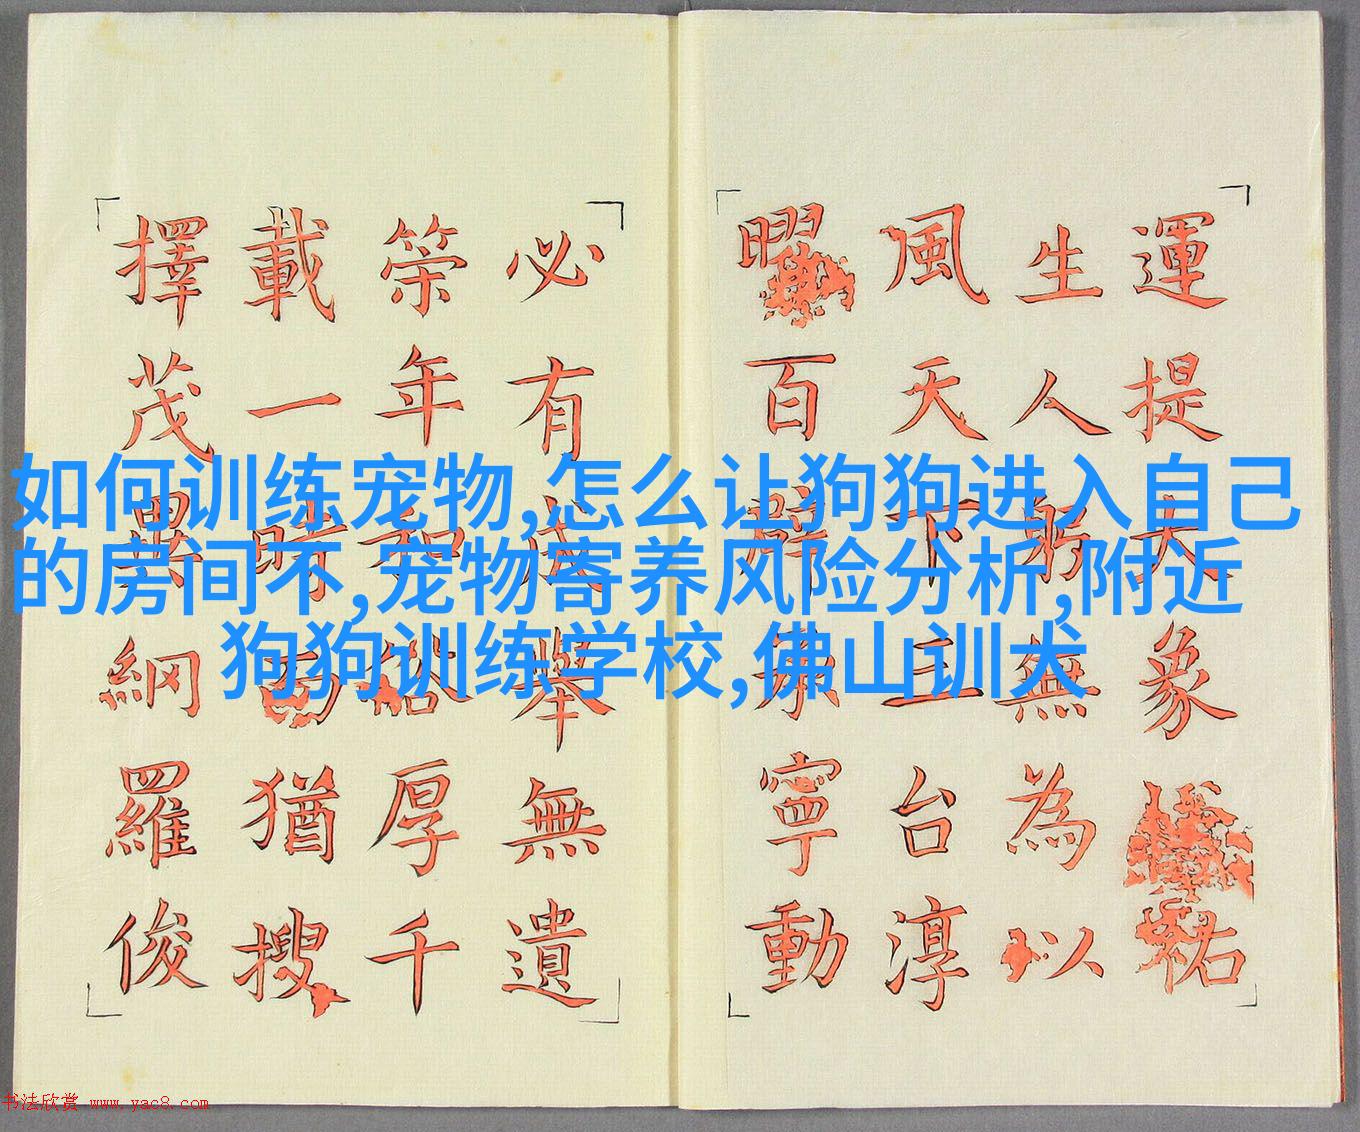 如何训练宠物,怎么让狗狗进入自己
的房间不,宠物寄养风险分析,附近
狗狗训练学校,佛山训犬
運提大象祐
生人躬無為以
風天下台淳
百辟寧動
必有舉無遺
年和厚千
載一時猶搜
擇茂異網羅俊
书法欣赏 www.yac8.com